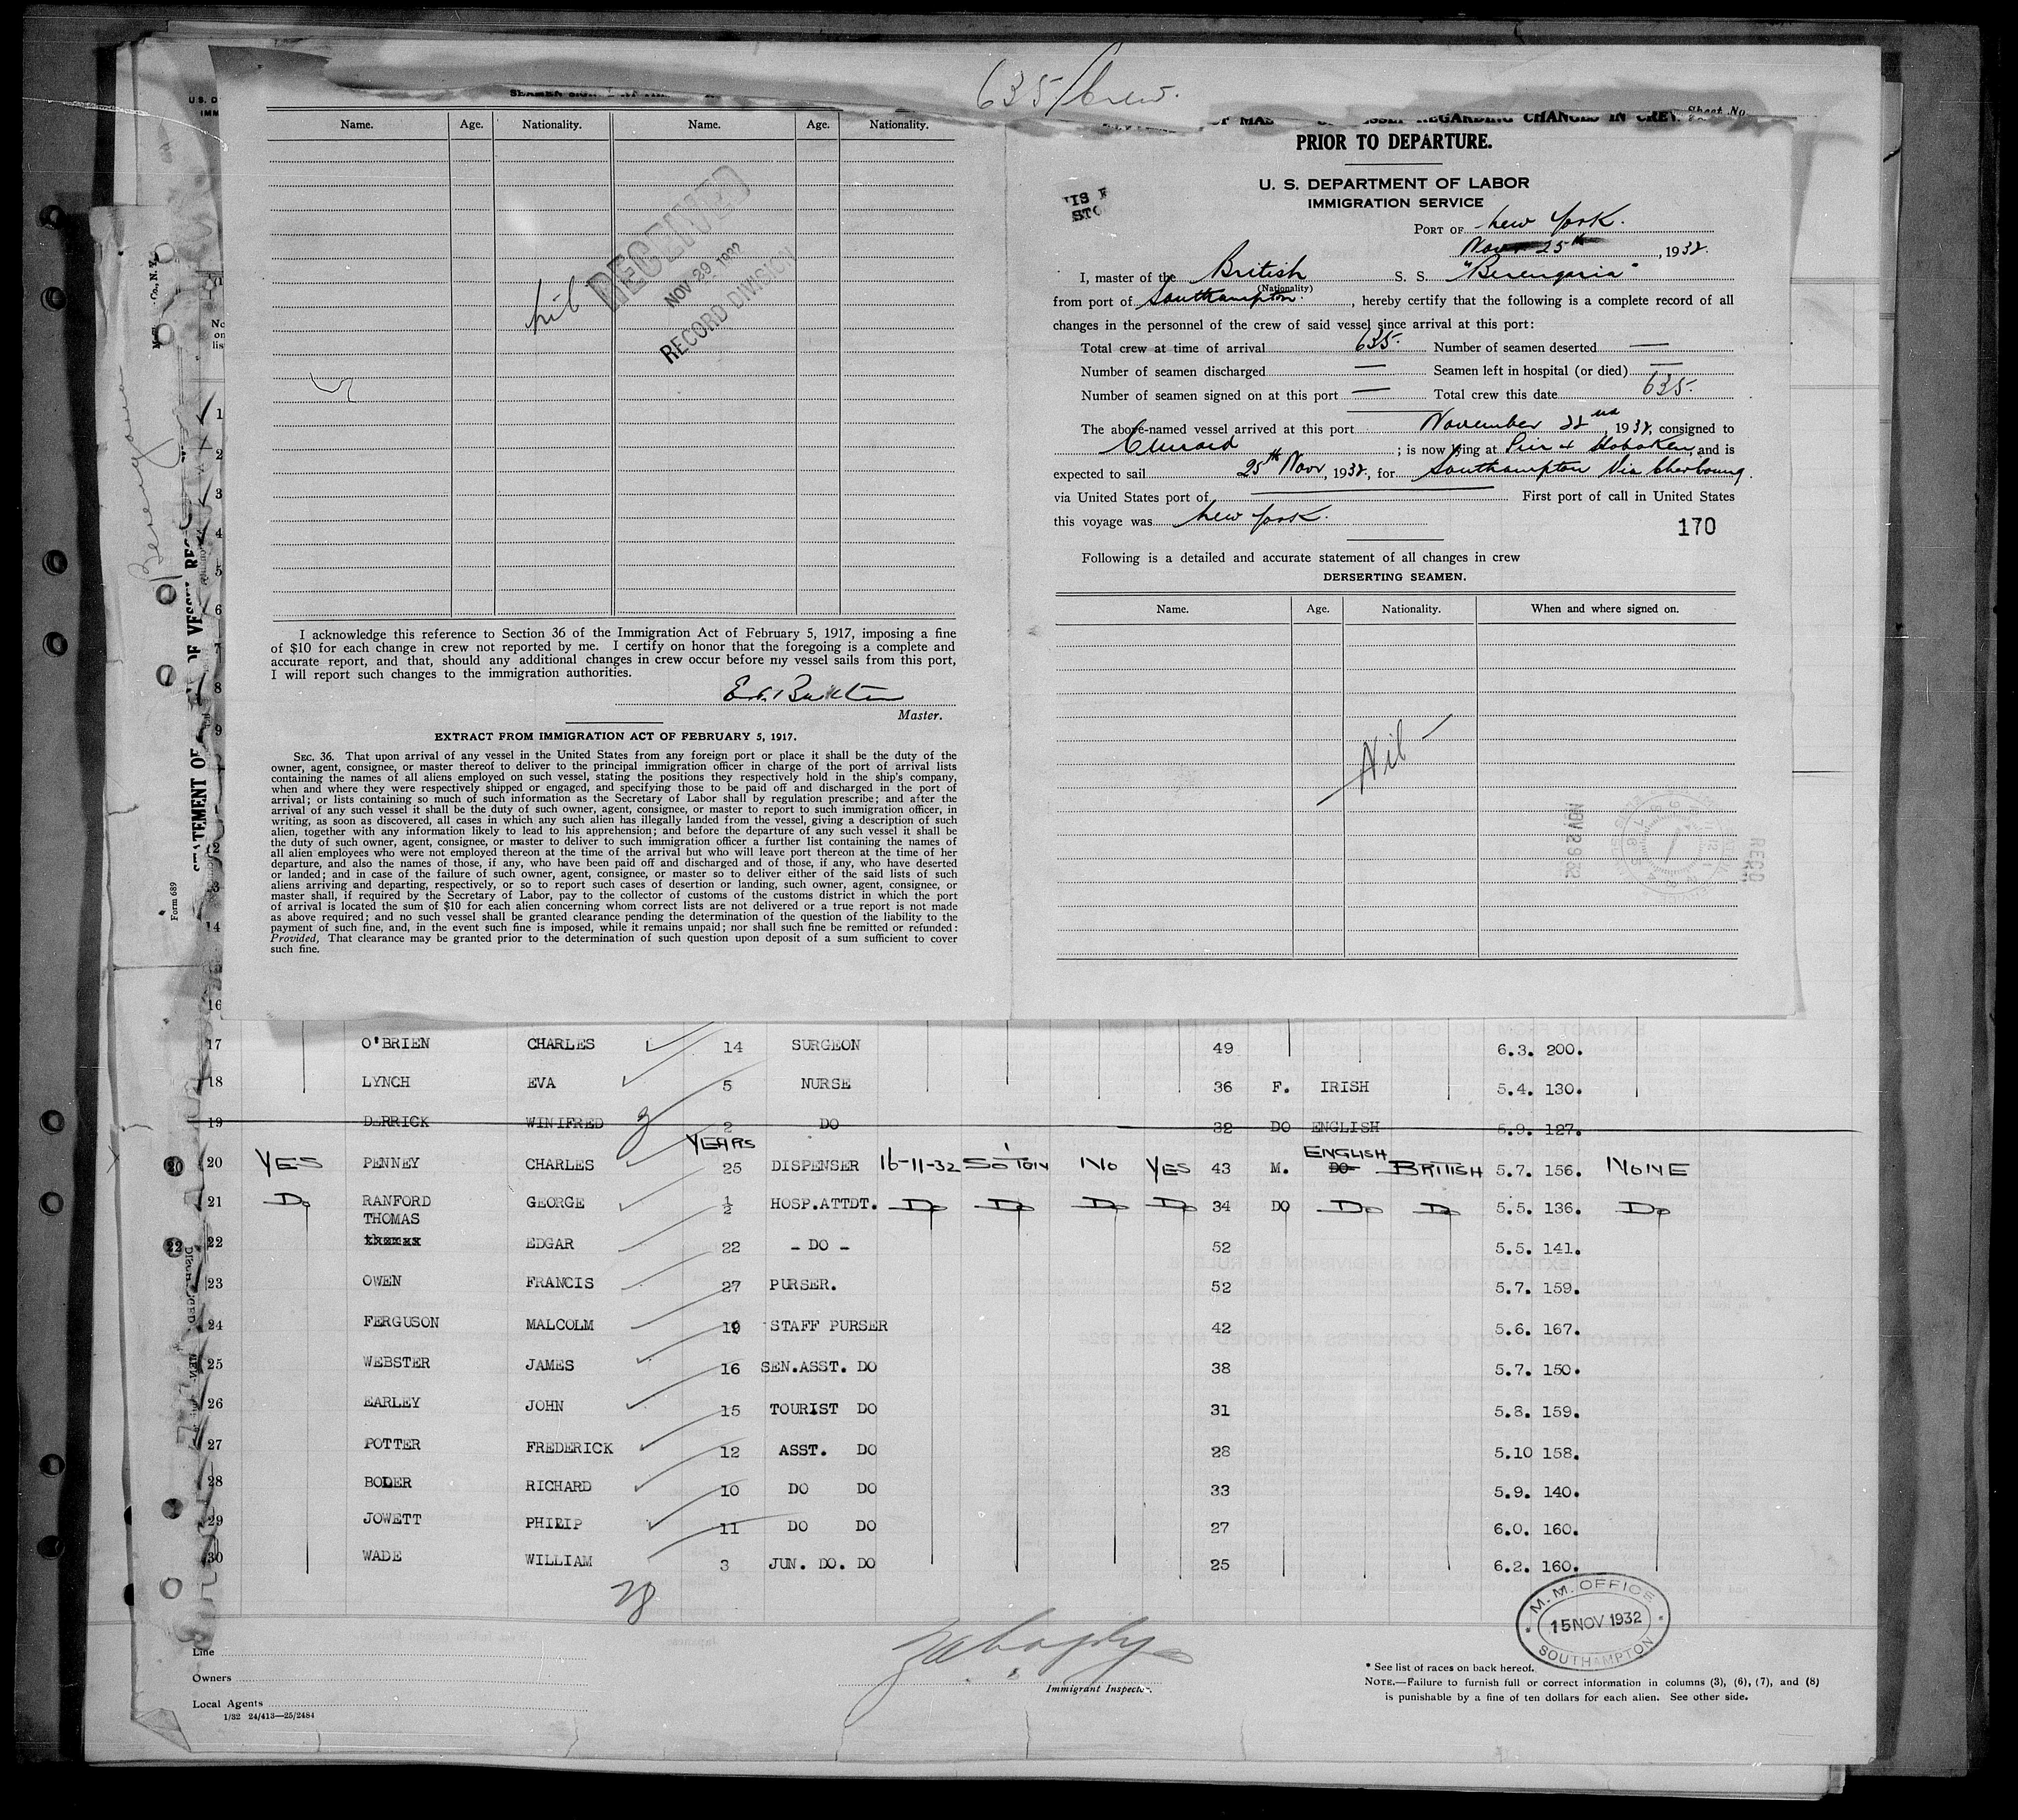 635/Crew.
Sheet No.
REGARDING CHANGES IN CREW
PRIOR TO DEPARTURE.
U. S. DEPARTMENT OF LABOR
IMMIGRATION SERVICE
PORT OF New York.
Novr 25th, 1932.
I, master of the British S. S. "Berengaria"
(Nationality)
from port of Southampton., hereby certify that the following is a complete record of all
changes in the personnel of the crew of said vessel since arrival at this port:
Total crew at time of arrival 635. Number of seamen deserted —
Number of seamen discharged — Seamen left in hospital (or died) —
Number of seamen signed on at this port — Total crew this date 635.
The above-named vessel arrived at this port November 22nd, 1932, consigned to
Cunard; is now lying at Pier 4 Hoboken, and is
expected to sail 25th Novr, 1932, for Southampton Via Cherbourg.
via United States port of — First port of call in United States
this voyage was New York.
170
Following is a detailed and accurate statement of all changes in crew
DERSERTING SEAMEN.
Name. Age. Nationality. When and where signed on.
Nil
NOV 29 32
RECD
Name. Age. Nationality. Name. Age. Nationality.
nil
RECEIVED
NOV 29 1932
RECORD DIVISION
I acknowledge this reference to Section 36 of the Immigration Act of February 5, 1917, imposing a fine
of $10 for each change in crew not reported by me. I certify on honor that the foregoing is a complete and
accurate report, and that, should any additional changes in crew occur before my vessel sails from this port,
I will report such changes to the immigration authorities.
Master.
EXTRACT FROM IMMIGRATION ACT OF FEBRUARY 5, 1917.
SEC. 36. That upon arrival of any vessel in the United States from any foreign port or place it shall be the duty of the
owner, agent, consignee, or master thereof to deliver to the principal immigration officer in charge of the port of arrival lists
containing the names of all aliens employed on such vessel, stating the positions they respectively hold in the ship's company,
when and where they were respectively shipped or engaged, and specifying those to be paid off and discharged in the port of
arrival; or lists containing so much of such information as the Secretary of Labor shall by regulation prescribe; and after the
arrival of any such vessel it shall be the duty of such owner, agent, consignee, or master to report to such immigration officer, in
writing, as soon as discovered, all cases in which any such alien has illegally landed from the vessel, giving a description of such
alien, together with any information likely to lead to his apprehension; and before the departure of any such vessel it shall be
the duty of such owner, agent, consignee, or master to deliver to such immigration officer a further list containing the names of
all alien employees who were not employed thereon at the time of the arrival but who will leave port thereon at the time of her
departure, and also the names of those, if any, who have been paid off and discharged and of those, if any, who have deserted
or landed; and in case of the failure of such owner, agent, consignee, or master so to deliver either of the said lists of such
aliens arriving and departing, respectively, or so to report such cases of desertion or landing, such owner, agent, consignee, or
master shall, if required by the Secretary of Labor, pay to the collector of customs of the customs district in which the port
of arrival is located the sum of $10 for each alien concerning whom correct lists are not delivered or a true report is not made
as above required; and no such vessel shall be granted clearance pending the determination of the question of the liability to the
payment of such fine, and, in the event such fine is imposed, while it remains unpaid; nor shall such fine be remitted or refunded:
Provided, That clearance may be granted prior to the determination of such question upon deposit of a sum sufficient to cover
such fine.
Berengaria
STATEMENT OF
OF VESSEL
Form 689
17 O'BRIEN CHARLES 14 SURGEON 49 6.3. 200.
18 LYNCH EVA 5 NURSE 36 F. IRISH 5.4. 130.
19 DERRICK WINIFRED 2 DO 32 DO ENGLISH 5.9. 127.
YEARS
20 YES PENNEY CHARLES 25 DISPENSER 16-11-32 SO'TON NO YES 43 M. DO ENGLISH BRITISH 5.7. 156. NONE
21 Do RANFORD GEORGE ½ HOSP.ATTDT. Do Do Do Do 34 DO Do Do 5.5. 136. Do
THOMAS
22 EDGAR 22 - DO - 52 5.5. 141.
23 OWEN FRANCIS 27 PURSER. 52 5.7. 159.
24 FERGUSON MALCOLM 19 STAFF PURSER 42 5.6. 167.
25 WEBSTER JAMES 16 SEN.ASST. DO 38 5.7. 150.
26 EARLEY JOHN 15 TOURIST DO 31 5.8. 159.
27 POTTER FREDERICK 12 ASST. DO 28 5.10 158.
28 BOLER RICHARD 10 DO DO 33 5.9. 140.
29 JOWETT PHILIP 11 DO DO 27 6.0. 160.
30 WADE WILLIAM 3 JUN. DO. DO 25 6.2. 160.
28
M.M. OFFICE
15 NOV 1932
SOUTHAMPTON
Line
Owners
Local Agents
1/32 24/413—25/2484
Immigrant Inspector.
* See list of races on back hereof.
NOTE.—Failure to furnish full or correct information in columns (3), (6), (7), and (8)
is punishable by a fine of ten dollars for each alien. See other side.